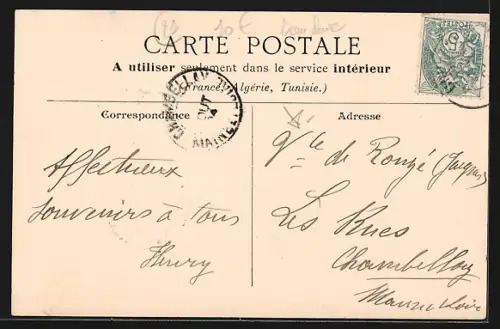 10 €
CARTE POSTALE
A utiliser seulement dans le service intérieur
(France, Algérie, Tunisie.)
Correspondance
Adresse
CHAMBELLAY
MAINE-ET-LOIRE
5
Affectueux
souvenirs à tous
Henry
de Rougé (Jacques)
Les Rues
Chambellay
Maine et Loire